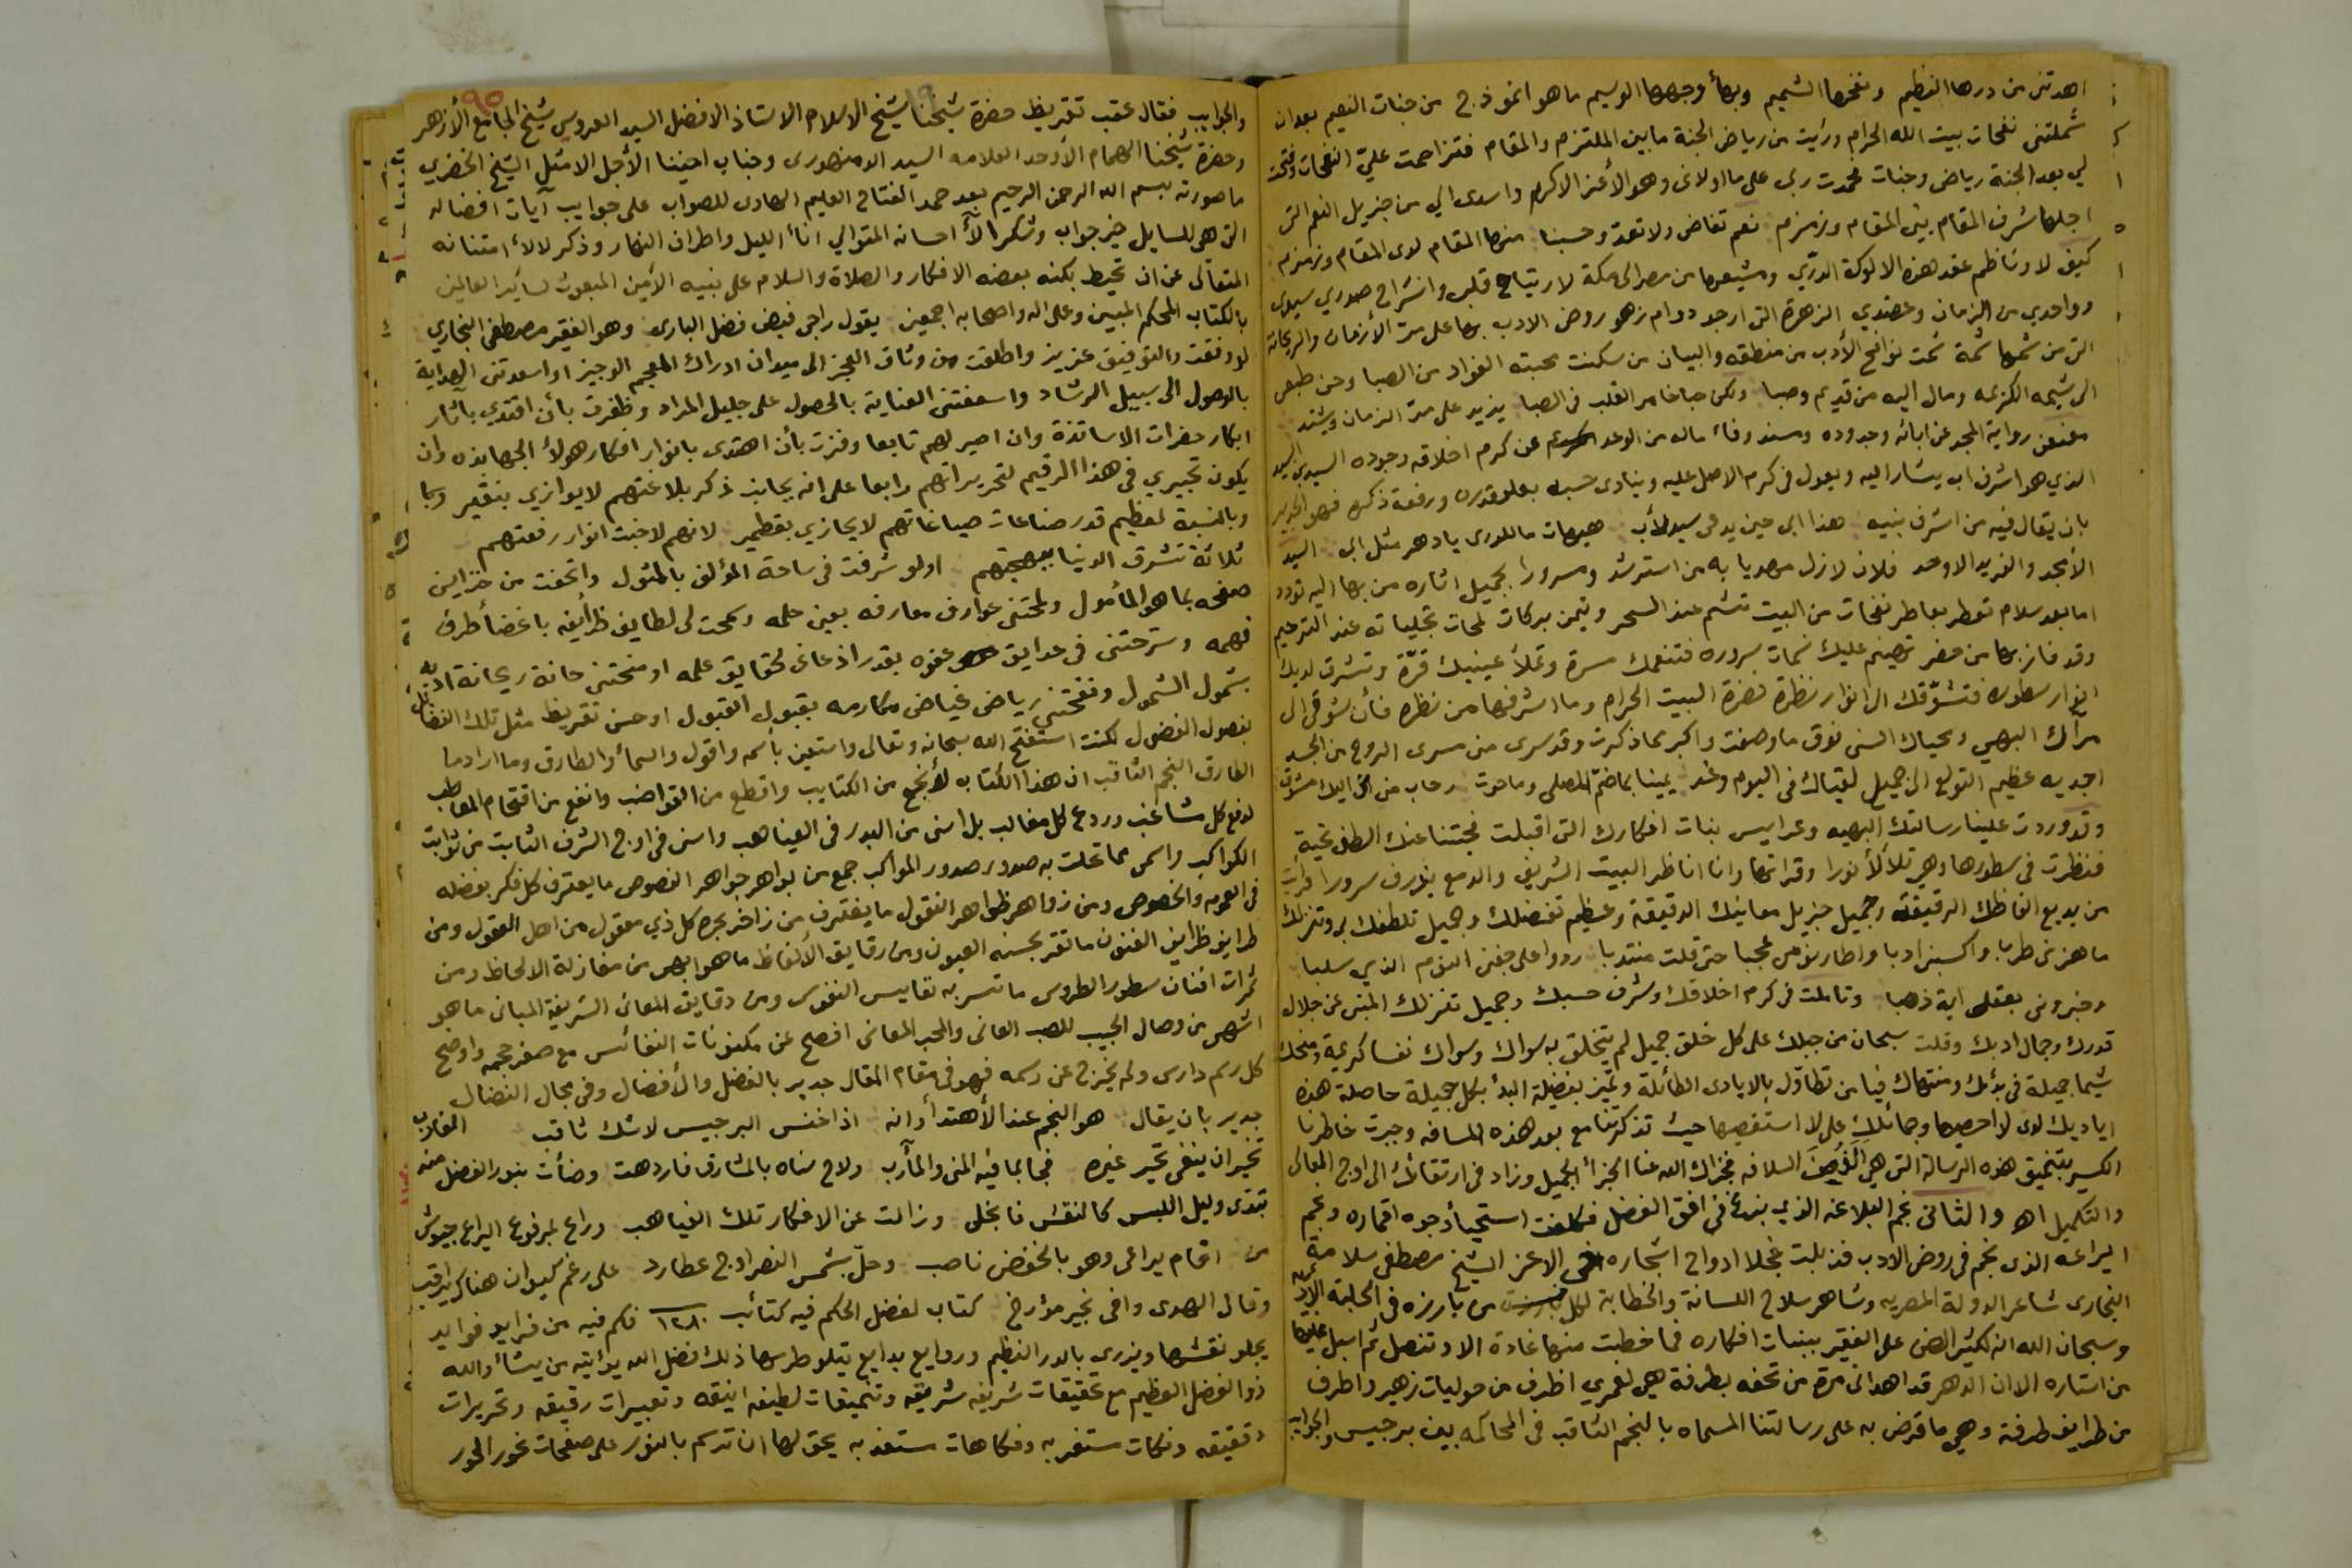 اهدتنى من درها النظيم ونفحها الشميم وبهأ وجهها الوسيم ما هو انموذج من جنات النعيم بعد ان
شملتنى نفحات بيت الله الحرام ورايت من رياض الجنة ما بين الملتزم والمقام فتزاحمت علىّ النفحات وفتحت
لي بعد الجنة رياض وجنات فحمدت ربى على ما اولانى وهو الأعز الاكرم واسدى الي من جزيل النعم التى
اجلها شرف المقام بين المقام وزمزم نعم تفاض ولا تعد وحسبنا منها المقام لدى المقام وزمزم
كيف لا وناظم عقد هذه الالوكة الدرّي ومشيعها من مصر الى مكة لارتياح قلبى وانشراح صدري سيدى
وواحدي من الزمان وعضدي الزهرة التى ارجو دوام زهو روض الادب بها على مرّ الأزمان والريحانة
التى من شمها شمة شمت نوافح الأدب من منطقه والبيان من سكنت محبته الفواد من الصبا وحن طبعى
الى شيمه الكريمه ومال اليه من قديم وصبا ولكن حبا خامر القلب فى الصبا يزيد على مرّ الزمان ويشتد
معنعن رواية المجد عن ابائه وجدوده ومسند وفاء ماله من الوعد عن كرم اخلاقه وجوده السيدى السيد
الذي هو اشرف اب يشار اليه ويعول فى كرم الاصل عليه وينادى حسبه بعلو قدره ورفعة ذكره فهو الجدير
بان يقال فيه من اشرف بنيه هذا ابى حين يدعى سيد لأب هيهات ما للورى يا دهر مثل ابى السيد
الأمجد والفريد الاوحد فلان لازال مهديا به من استرشد ومسرورا بجميل اثاره من بها اليه تودد
اما بعد سلام تعطر بعاطر نفحات من البيت تشم عند السحر وتيمن ببركات لمحات تجلياته عند الترحيم
وقد فاز بها من حضر تهيم عليك نسمات سروره فتنعمك مسرة وتملأ عينيك قرّة وتشرق لديك
انوار سطوره فتشوّقك الى انوار نظرة لحضرة البيت الحرام وما اشرفها من نظره فأن شوقى الى
مرآك البهي ومحياك السنى فوق ما وصفت واكبر مما ذكرت وقد سرى منى مسرى الروح من الجسد
اجد به عظيم التولع الى جميل لقياك فى اليوم وغد يمينا بما ضم المصلى وما حوت رحاب منى انى اليك مشوق
وقد وردت علينا رسالتك البهيه وعرايس بنات افكارك التى اقبلت فحيتنا عنك الطف تحية
فنظرت فى سطورها وهى تتلألأ نورا وقراتها وانا اناظر البيت الشريف والدمع يذرف سرورا فرأيت
من بديع الفاظك الرقيقة وجميل جزيل معانيك الدقيقة وعظيم تفضلك وجميل تلطفك بى وتنزلك
ما هزنى طربا واكسبنى ادبا واطار نومى عجبا حتى قلت منتدبا ردوا على جفنى النوم الذي سلبا
وخبرونى بعقلى اية ذهبا وتاملت فى كرم اخلاقك وشرف حسبك وجميل تغزلك المبنى عن جلال
قدرك وجمال ادبك وقلت سبحان من جبلك على كل خلق جميل لم يتخلق به سواك وسواك نفسا كريمة ومنحك
شيما جميلة فى بدئك ومنتهاك فيا من تطاول بالايادى الطائلة وتميز بفضيلة البدأ بكل جميلة حاصلة هذه
اياديك لدى لا احصيها وجمائلك على لا استقصيها حيث تذكرتنا مع بعد هذه المسافه وجبرت خاطرنا
الكسير بتنميق هذه الرسالة التى هى السلافه فجزاك الله عنا الجزأ الجميل وزاد فى ارتقائك الى اوج المعالى
والتكميل اه والثانى نجم البلاغه الذي بزغ فى افق الفضل فكسفت استحيأ وجوه اقماره ونجم
اليراعه الذى نجم فى روض الادب فذبلت خجلا ادواح اشجاره اخى الاعز الشيخ مصطفى سلامة
النجارى شاعر الدولة المصريه وشاهر سلاح اللسانة والخطابة لكل من بارزه فى الحلبة الادبيه
وسبحان الله انه لكثير الضن على الفقير ببنات افكاره فما خطبت منها غادة الا وتنصل ثم اسبل عليها
من استاره الا ان الدهر قد اهدانى مرة من تحفه بطرفة هى لعمري اظرف من حوليات زهير واطرف
من طرايف طرفة وهى ما قرض به على رسالتنا المسماه بالنجم الثاقب فى المحاكمه بين برجيس والجوايب
والجوايب فقال عقب تقريظ حضرة شيخنا شيخ الاسلام الاستاذ الافضل السيد العروسى شيخ الجامع الأزهر
وحضرة شيخنا الهمام الأوحد العلامه السيد الدمنهورى وجناب اخينا الأجل الامثل الشيخ الخضري
ما صورته بسم الله الرحمن الرحيم بعد حمد الفتاح العليم الهادى للصواب على جوايب آيات افضاله
التى هى للسايل خير جواب وشكر الآ احسانه المتوالي انأ الليل واطراف النهار وذكر لالأ امتنانه
المتعالى عن ان تحيط بكنه بعضه الافكار والصلاة والسلام على نبيه الأمين المبعوث لسائر العالمين
بالكتاب المحكم المبين وعلى اله واصحابه اجمعين يقول راجى فيض فضل البارى وهو الفقير مصطفى النجاري
لو وفقت والتوفيق عزيز واطلقت من وثاق العجز الى ميدان ادراك المعجم الوجيز او اسعدتنى الهداية
بالوصول الى سبيل الرشاد واسعفتنى العناية بالحصول على جليل المراد وظفرت بأن اقتدي باثار
ابكار حضرات الاساتذة وان اصير لهم تابعا وفزت بأن اهتدى بانوار افكار هولأ الجهابذه وان
يكون تحبيري فى هذا الرقيم لتحريراتهم رابعا على انه بجانب ذكر بلاغتهم لا يوازي بنقير
وبالنسبة لعظيم قدر صناعات صياغاتهم لا يجازي بقطمير لانهم لاخبت انوار رفعتهم
ثلاثة تشرق الدنيا ببهجتهم اولو شرفت فى ساحة المؤلف بالمثول واتحفت من خزاين
صفحه بما هو المأمول ولمحتنى عوارف معارفه بعين حلمه وسمحت لى لطايف ظرايفه باغضأ طرف
فهمه وسرحتنى فى حدايق عفوه بقدر اذعانى لحقايق علمه او منحتنى حانة ريحانة ادبه
بشمول الشمول ونفحتنى رياض غياض مكارمه بقبول القبول او حسن تقريظ مثل تلك الفضايل
بفصول الفضول لكنت استفتح الله سبحانه وتعالى واستعين بأسمه واقول والسمأ والطارق وما ادراك ما
الطارق النجم الثاقب ان هذا الكتاب لأنجح من الكتايب واقطع من القواضب وانفع من اقتحام المعاطب
لدفع كل مشاغب وردع كل مغالب بل اسنى من البدر فى الغياهب واسنى فى اوج الشرف الثابت من ثوابت
الكواكب واسمى مما تحلت به صدور صدور المواكب جمع من بواهر جواهر النصوص ما يعترف كل فكر بفضله
فى العموم والخصوص ومن زواهر ظواهر النقول ما يغترف من زاخر بحره كل ذي معقول من اهل العقول ومن
طرايف ظرايف الفنون ما تقر بحسنه العيون ومن رقايق الألفاظ ما هو ابهى من مغازلة الالحاظ ومن
ثمرات افنان سطور الطروس ما تسر به نفايس النفوس ومن دقايق المعانى الشريفة المبانى ما هو
اشهى من وصال الحبيب للصب العانى والمحب المعانى افصح عن مكنونات النفائس مع صغر حجمه واوضح
كل رسم دارس ولم يخرج عن رسمه فهو فى مقام المقال جدير بالفضل والأفضال وفى مجال النضال
جدير بان يقال هو النجم عند الأهتدأ وانه اذا خنس البرجيس لا شك ثاقب
تخير ان ينفى تحير غيره فجا بما فيه المنى والمآرب ولاح سناه بالمشارق فازدهت وضأت بنور الفضل منه المغارب
تبدى وليل اللبس كالنقس فانجلى وزالت عن الافكار تلك الغياهب وراع لمرفوع اليراع جيوش
من اقام يراعى وهو بالخفض ناصب وحلّ بشمس النصر اوج عطارد على رغم كيوان هناك يراقب
وقال الهدى وافى بخير مؤرخ كتاب لفضل الحكم فيه كتائب ١٢٨٠ فكم فيه من فرايد فوايد
يجلو نقشها ويزرى بالدر النظيم وروايع بدايع يتلو طرسها ذلك فضل الله يؤتيه من يشأ والله
ذو الفضل العظيم مع تحقيقات شريفه شريقه وتنميقات لطيفه انيقه وتعبيرات رقيقه وتحريرات
دقيقه ونكات مستغربه وفكاهات مستعذبه يحق لها ان ترسم بالنور على صفحات نحور الحور